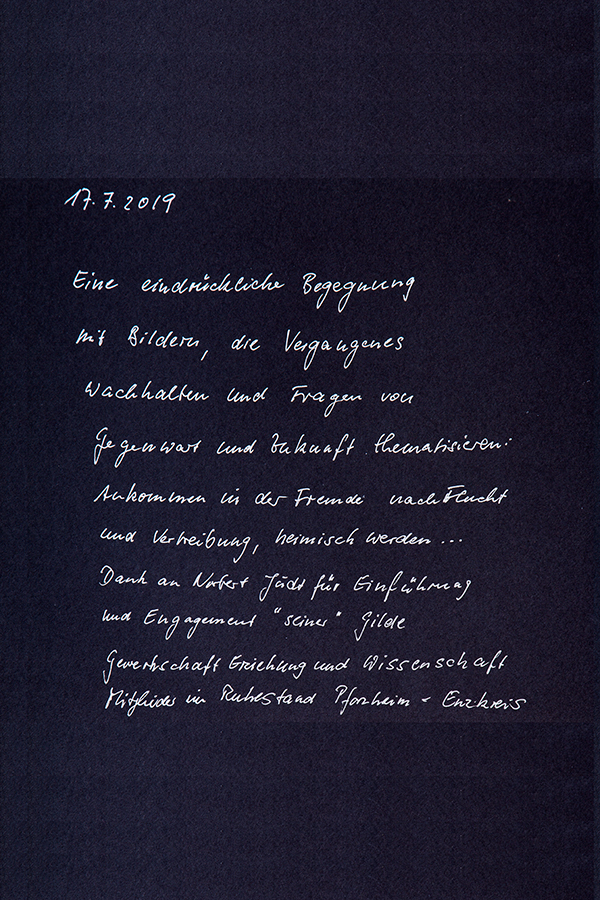 17.7.2019
Eine eindrückliche Begegnung
mit Bildern, die Vergangenes
wachhalten und Fragen von
Gegenwart und Zukunft thematisieren:
Ankommen in der Fremde nach Flucht
und Vertreibung, heimisch werden ...
Dank an Norbert für Einführung
und Engagement "seiner" Gilde
Gewerkschaft Erziehung und Wissenschaft
Mitglieder im Ruhestand Pforzheim - Enzkreis